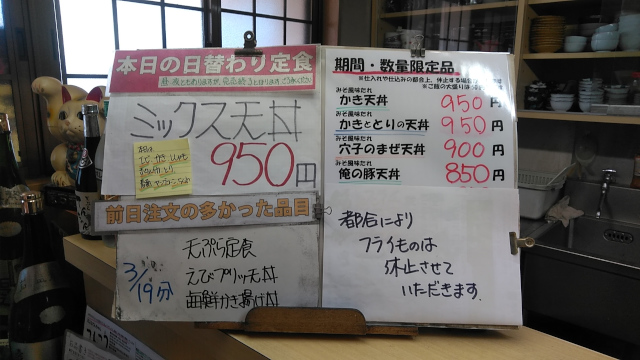 本日の日替わり定食
ミックス天丼
950円
前日注文の多かった品目
3/19分
天ぷら定食
えびプリッ天丼
海鮮かき揚げ丼
期間・数量限定品
※仕入れや仕込みの都合上、休止する場合
※ご飯の大盛り
みそ風味だれ
かき天丼 950円
みそ風味だれ
かきととりの天丼 950円
みそ風味だれ
穴子のまぜ天丼 900円
みそ風味だれ
俺の豚天丼 850円
都合により
フライものは
休止させて
いただきます.